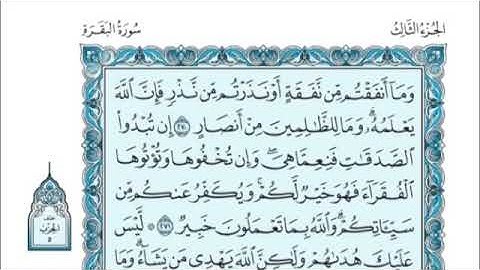 الجزء الثالث
سورة البقرة
وَمَا أَنفَقْتُم مِّن نَّفَقَةٍ أَوْ نَذَرْتُم مِّن نَّذْرٍ فَإِنَّ ٱللَّهَ
يَعْلَمُهُۥ ۗ وَمَا لِلظَّٰلِمِينَ مِنْ أَنصَارٍ ٢٧٠ إِن تُبْدُوا۟
ٱلصَّدَقَٰتِ فَنِعِمَّا هِىَ ۖ وَإِن تُخْفُوهَا وَتُؤْتُوهَا
ٱلْفُقَرَآءَ فَهُوَ خَيْرٌ لَّكُمْ ۚ وَيُكَفِّرُ عَنكُم مِّن
سَيِّـَٔاتِكُمْ ۗ وَٱللَّهُ بِمَا تَعْمَلُونَ خَبِيرٌ ٢٧١ لَّيْسَ
عَلَيْكَ هُدَىٰهُمْ وَلَٰكِنَّ ٱللَّهَ يَهْدِى مَن يَشَآءُ ۗ وَمَا
الحزب
٥